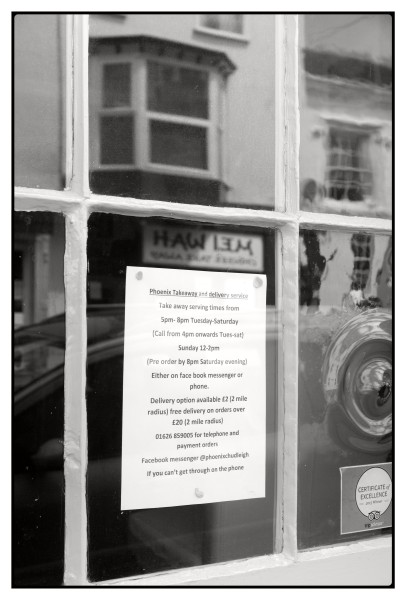 MEL WAH
Phoenix Takeaway and delivery service
Take away serving times from
5pm- 8pm Tuesday-Saturday
(Call from 4pm onwards Tues-sat)
Sunday 12-2pm
(Pre order by 8pm Saturday evening)
Either on face book messenger or
phone.
Delivery option available £2 (2 mile
radius) free delivery on orders over
£20 (2 mile radius)
01626 859005 for telephone and
payment orders
Facebook messenger @phoenixchudleigh
If you can't get through on the phone
CERTIFICATE of
EXCELLENCE